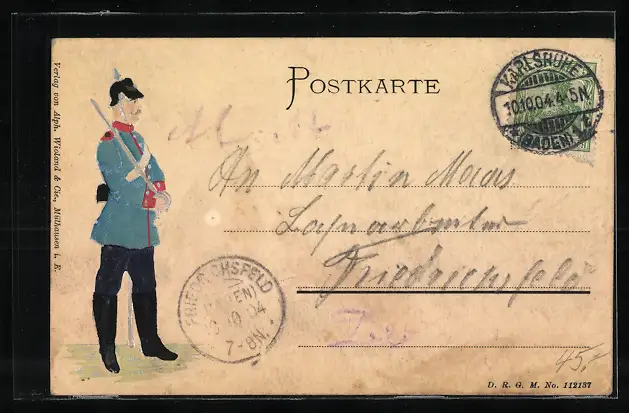 POSTKARTE
KARLSRUHE
10.10.04.4-5N.
(BADEN)
An Martin Maas
Friedrichsfeld
FRIEDRICHSFELD
(BADEN)
10 04
7-8N.
45.-
D. R. G. M. No. 112137
Verlag von Alph. Wioland & Cie., Mülhausen i. E.